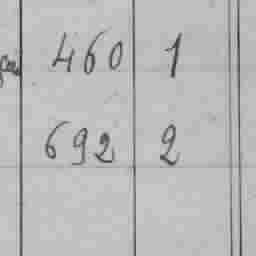 460 1
692 2